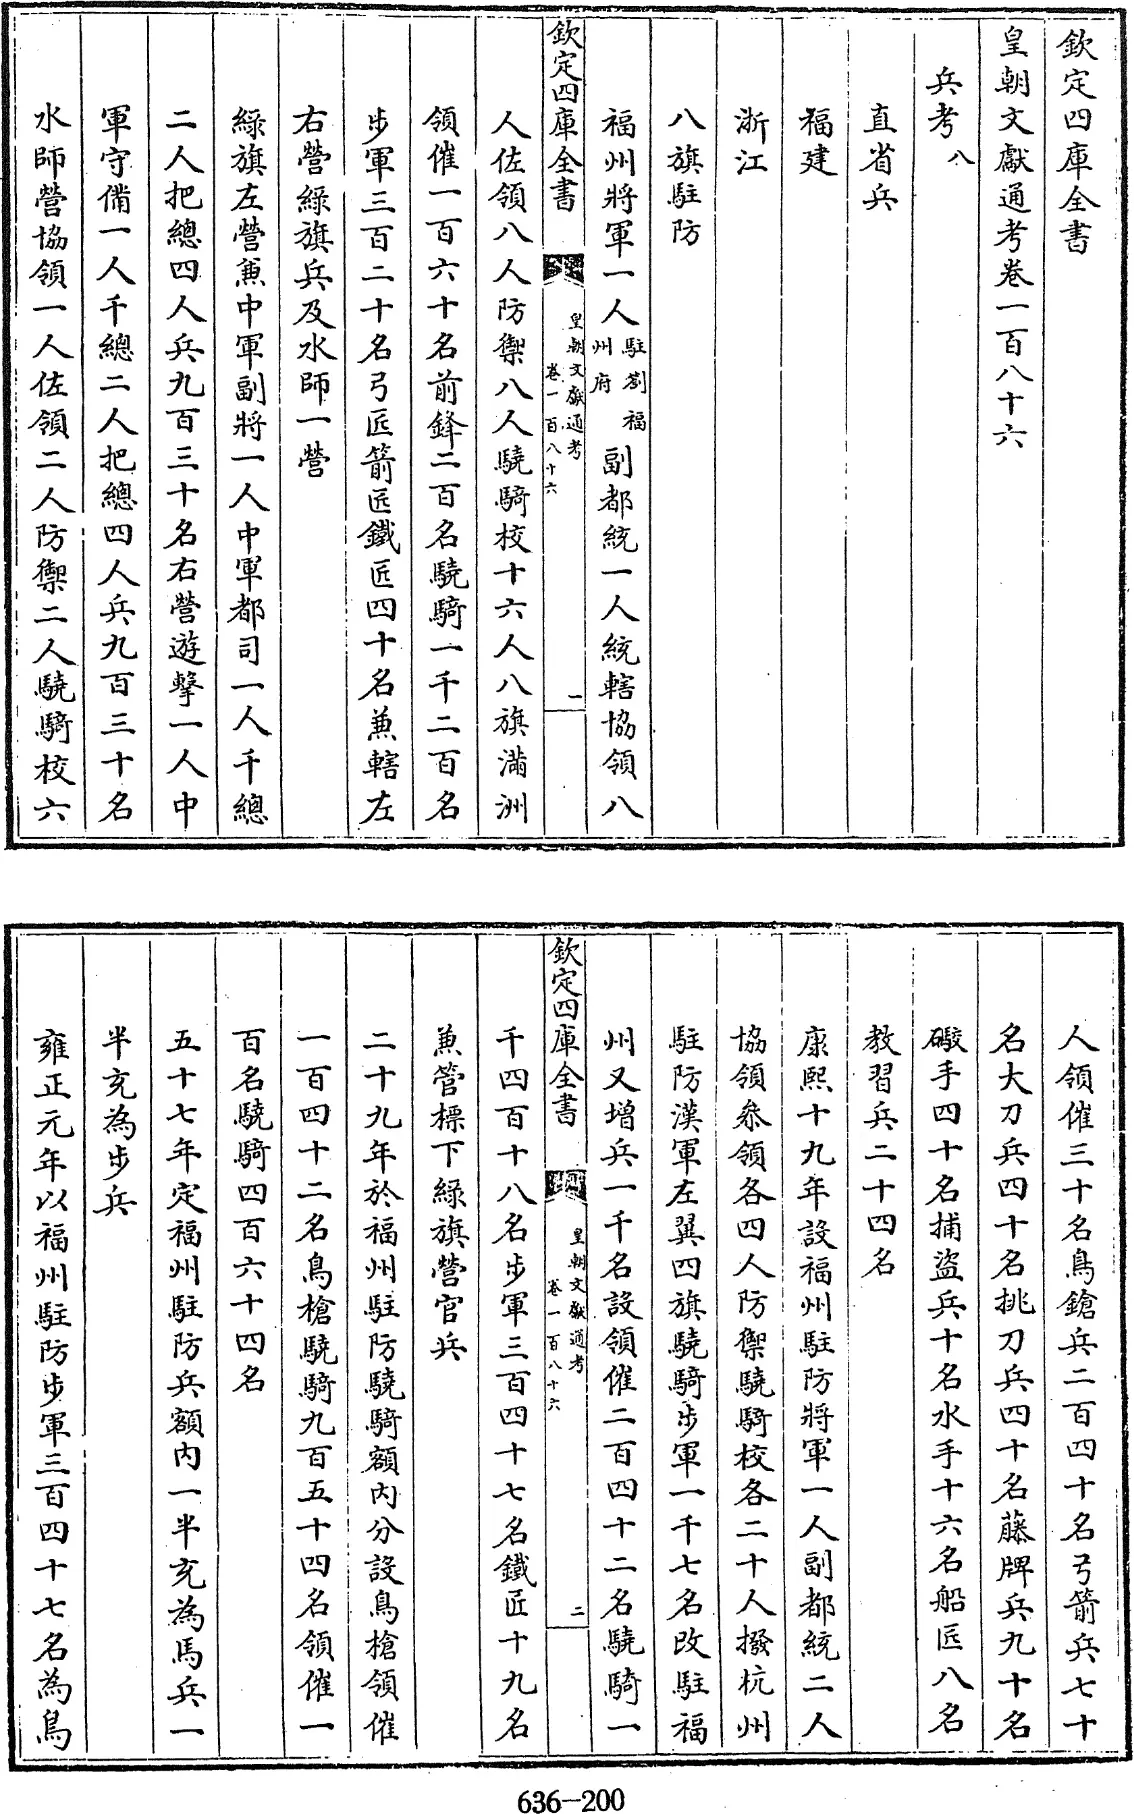 欽定四庫全書
皇朝文獻通考卷一百八十六
兵考八
直省兵
福建
浙江
八旗駐防
福州將軍一人駐劄福州府副都統一人統轄協領八
欽定四庫全書
皇朝文獻通考
卷一百八十六
一
人佐領八人防禦八人驍騎校十六人八旗滿洲
領催一百六十名前鋒二百名驍騎一千二百名
步軍三百二十名弓匠箭匠鐵匠四十名兼轄左
右營綠旗兵及水師一營
綠旗左營兼中軍副將一人中軍都司一人千總
二人把總四人兵九百三十名右營遊擊一人中
軍守備一人千總二人把總四人兵九百三十名
水師營協領一人佐領二人防禦二人驍騎校六
人領催三十名鳥鎗兵二百四十名弓箭兵七十
名大刀兵四十名挑刀兵四十名藤牌兵九十名
礮手四十名捕盜兵十名水手十六名船匠八名
教習兵二十四名
康熙十九年設福州駐防將軍一人副都統二人
協領叅領各四人防禦驍騎校各二十人撥杭州
駐防漢軍左翼四旗驍騎步軍一千七名改駐福
州又增兵一千名設領催二百四十二名驍騎一
欽定四庫全書
皇朝文獻通考
卷一百八十六
二
千四百十八名步軍三百四十七名鐵匠十九名
兼管標下綠旗營官兵
二十九年於福州駐防驍騎額內分設鳥槍領催
一百四十二名鳥槍驍騎九百五十四名領催一
百名驍騎四百六十四名
五十七年定福州駐防兵額內一半充為馬兵一
半充為步兵
雍正元年以福州駐防步軍三百四十七名為鳥
636-200